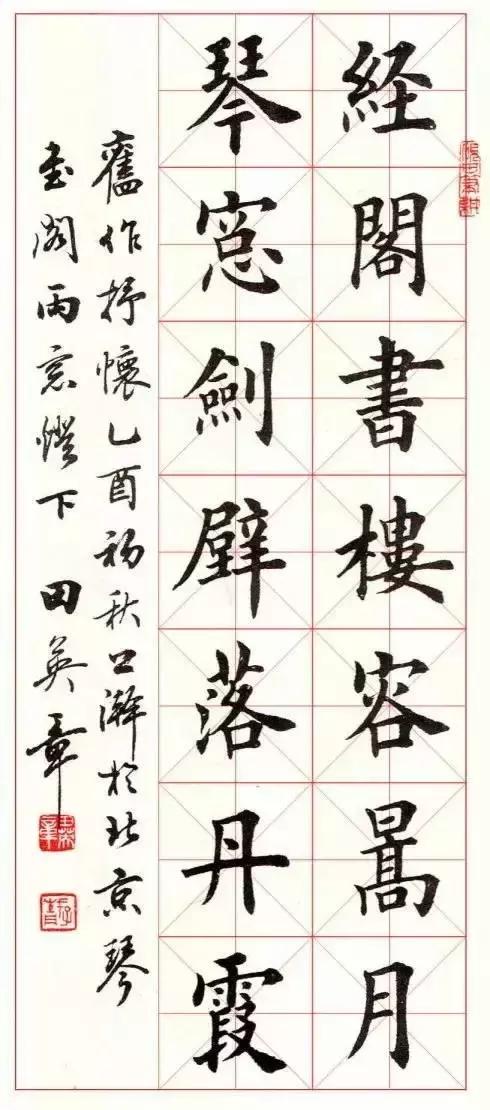 経閣書樓容暠月
琴窓劍壁落丹霞
舊作抒懷乙酉初秋上澣於北京琴
書閣雨窓燈下 田英章